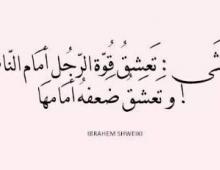 ـثَى : تَعشِقُ قُوّة الرّجُل أمَام النّا
! و تَعشقُ ضعفهُ أمَامهَا
IBRAHEM SHWEIKI